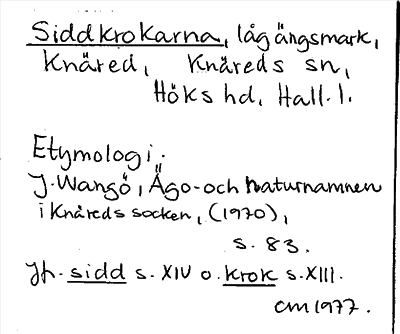 Siddkrokarna, låg ängsmark,
Knäred, Knäreds sn,
Höks hd, Hall. l.
Etymologi.
J. Wangö, Ägo- och naturnamnen
i Knäreds socken, (1970),
s. 83.
Jf. sidd s. XIV o. krok s. XIII.
CM 1977.